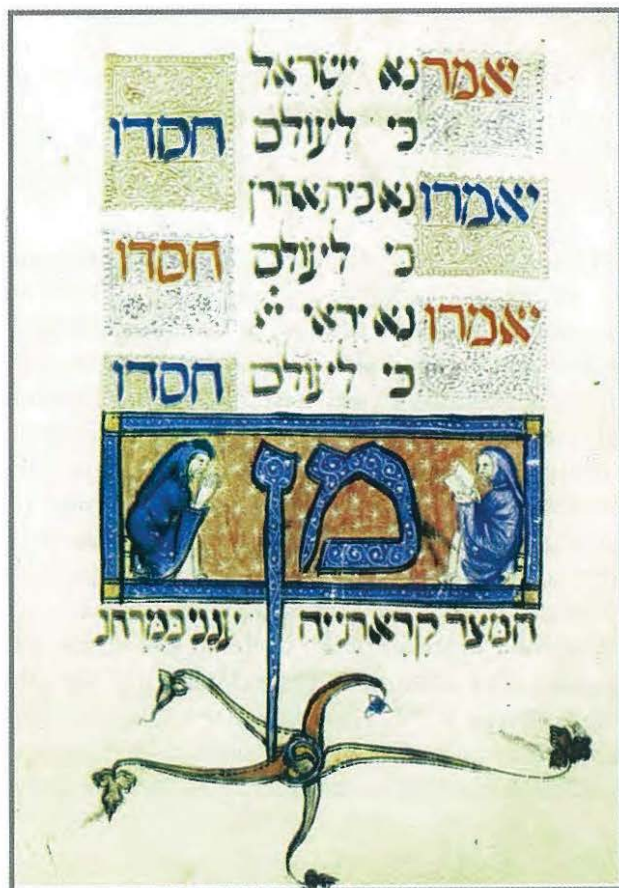 יאמר נא ישראל
כי לעולם חסדו
יאמרו נא בית אהרן
כי לעולם חסדו
יאמרו נא יראי ייי
כי לעולם חסדו
מן
המצר קראתי יה ענני במרחב